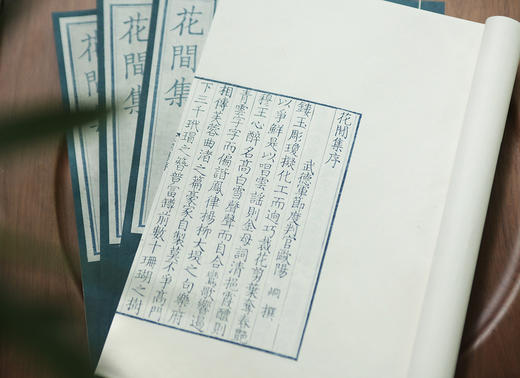 花間集序
武德軍節度判官歐陽炯撰
鏤玉彫瓊擬化工而迥巧裁花剪葉奪春艷
以爭鮮是以唱雲謠則金母詞清挹霞醴則
穆王心醉名高白雪聲聲而自合鸞歌響遏
青雲字字而偏諧鳳律楊柳大堤之句樂府
相傳芙蓉曲渚之篇豪家自製莫不爭高門
下三千玳瑁之簪競富罇前數十珊瑚之樹
花間集
花間集
花間集